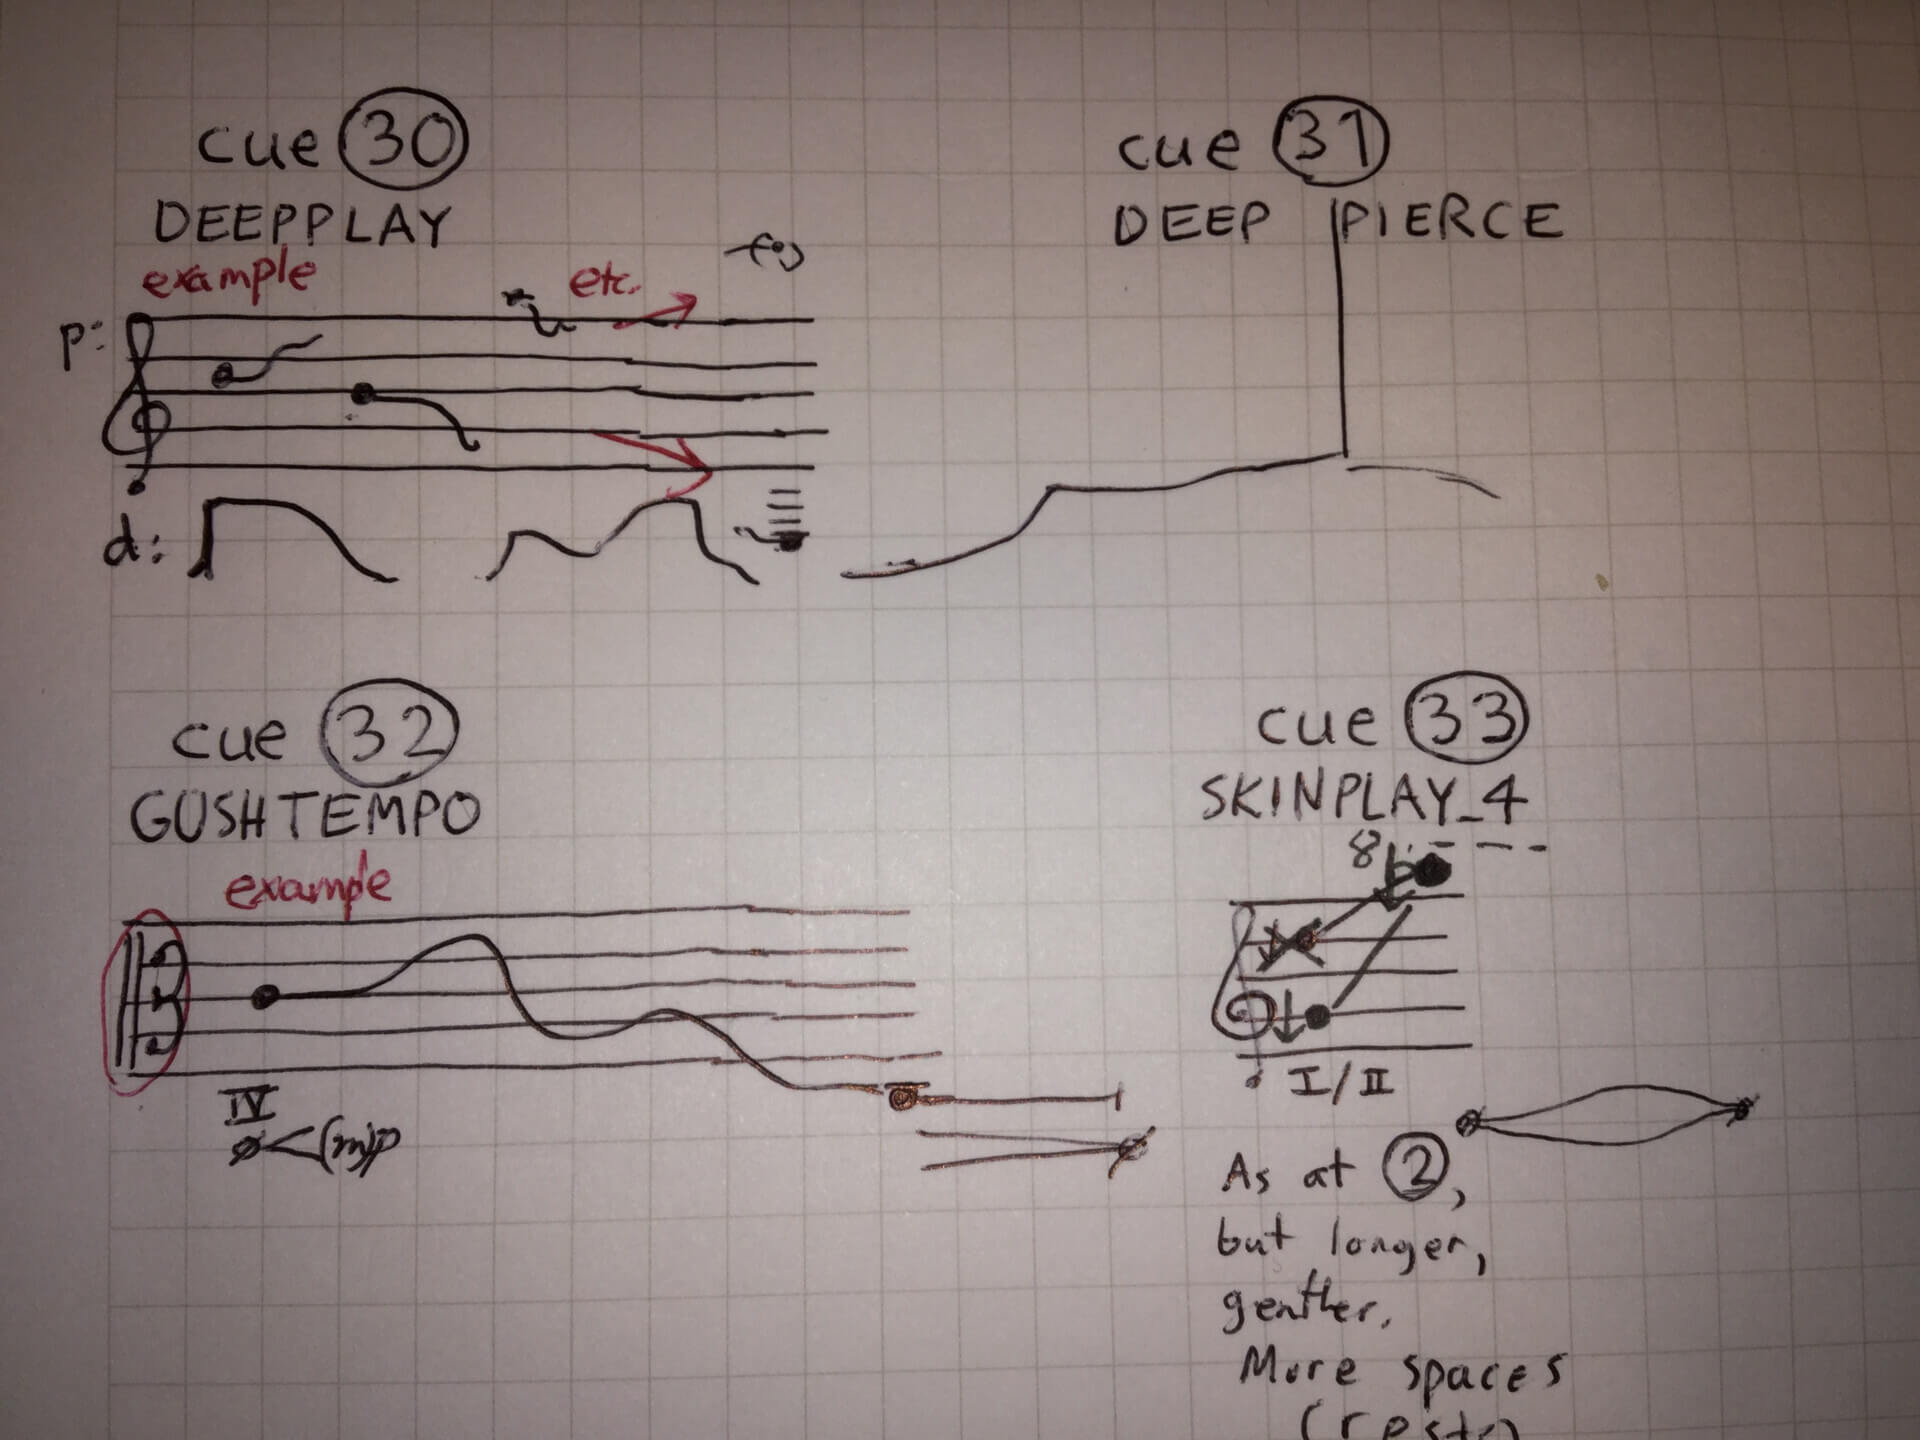 cue 30
DEEPPLAY
example
etc.
p:
d:
cue 31
DEEP PIERCE
cue 32
GUSHTEMPO
example
IV
ø<(m)p
cue 33
SKINPLAY_4
8
I/II
As at 2,
but longer,
gentler.
More spaces
(rests)